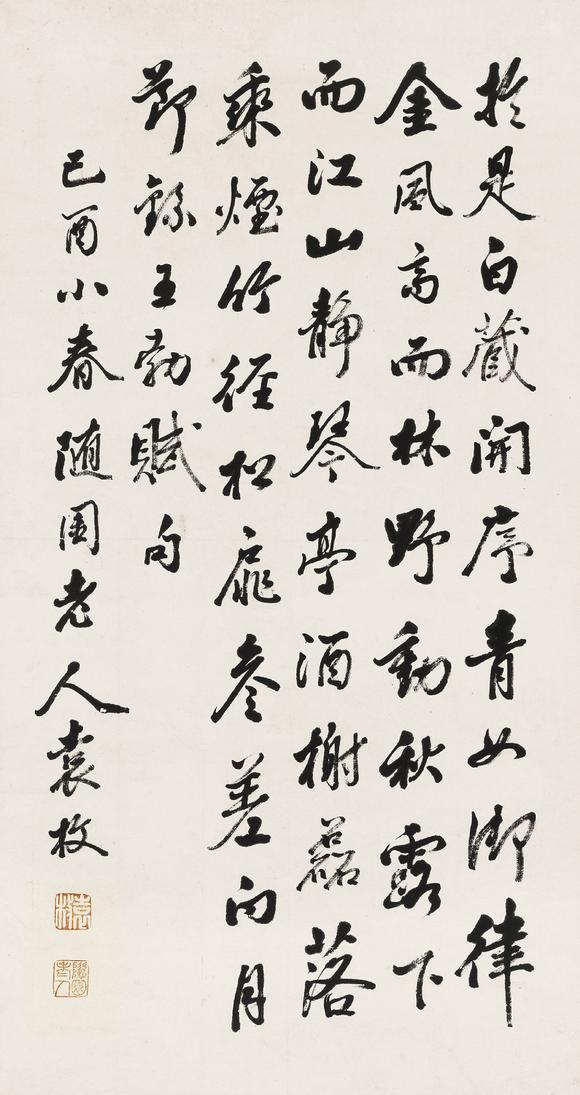 於是白藏開序青女御律
金風高而林野動秋露下
而江山靜琴亭酒榭磊落
乘煙竹徑松扉參差向月
節錄王勃賦句
己酉小春随園老人袁枚
袁枚
隨園老人